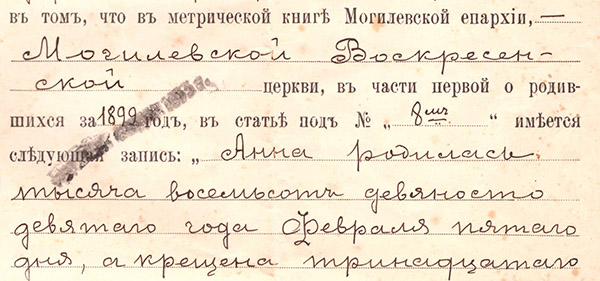 въ томъ, что въ метрической книгѣ Могилевской епархіи,—
Могилевской Воскресен-
ской церкви, въ части первой о родив-
шихся за 1899 годъ, въ статьѣ подъ № „ 8мъ “ имѣется
слѣдующая запись: „ Анна родилась
тысяча восемьсотъ девяносто
девятаго года Февраля пятаго
дня, а крещена тринадцатаго